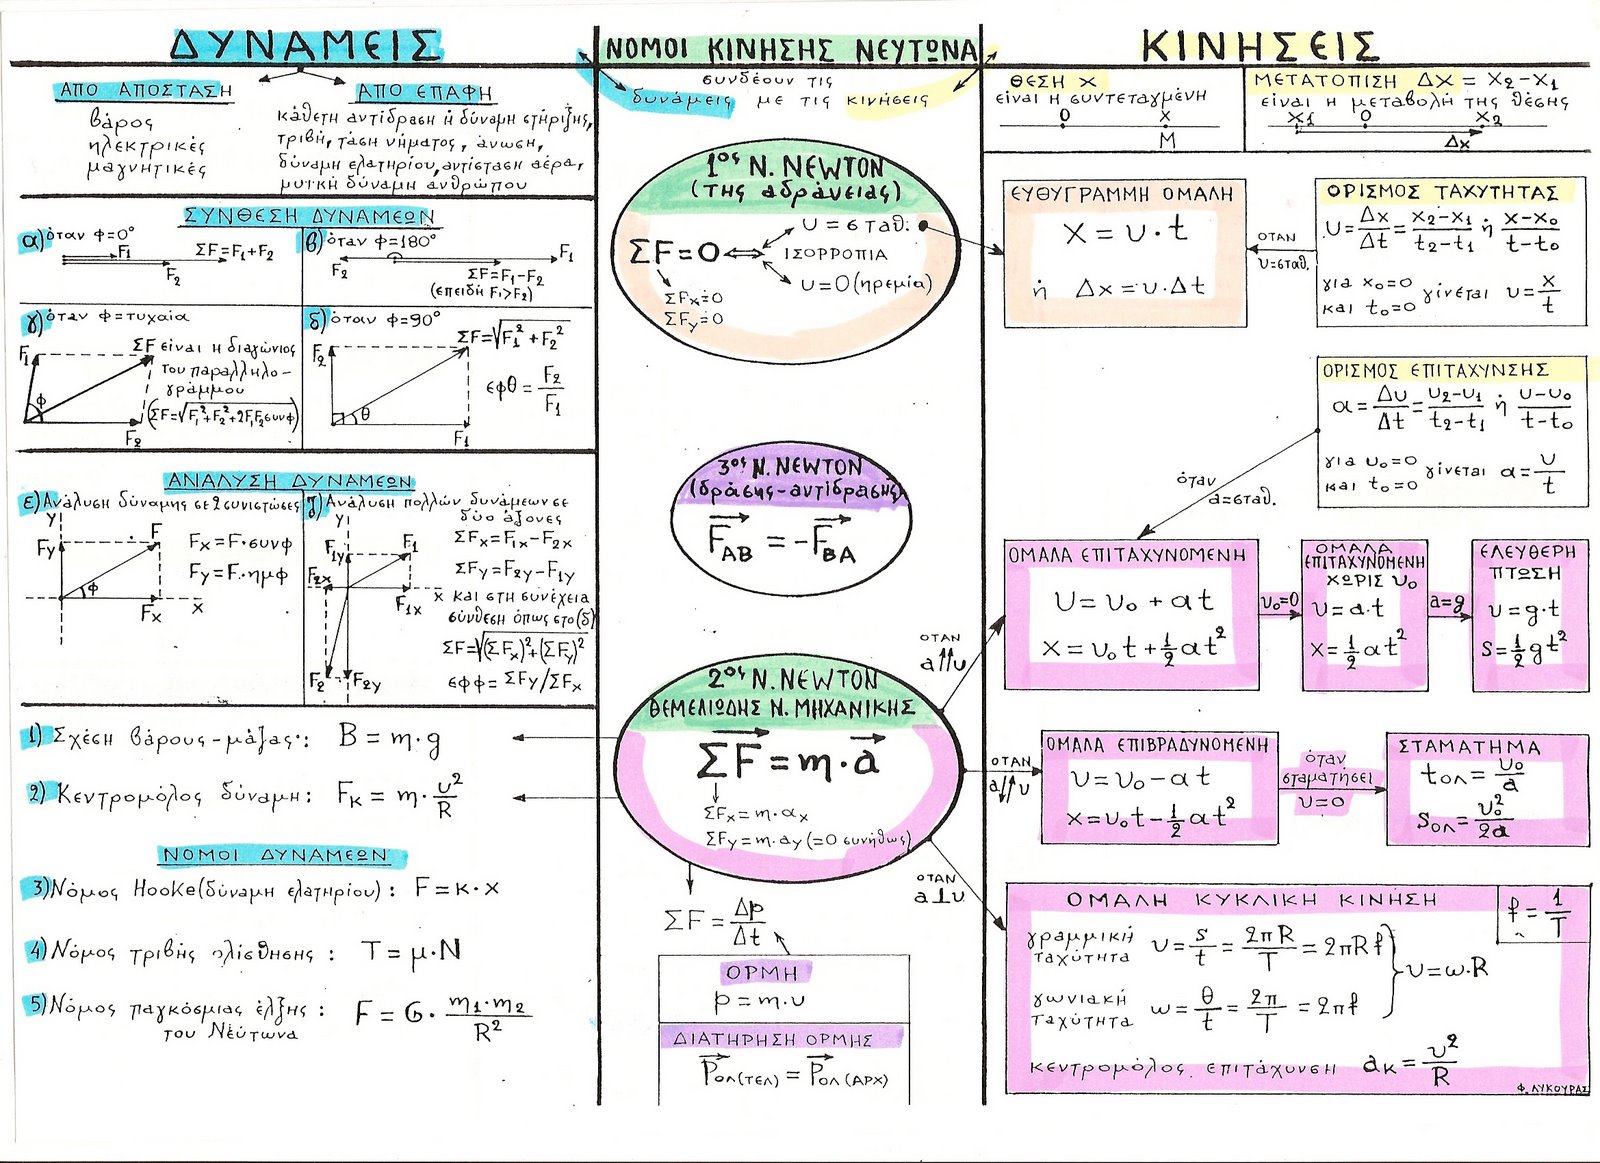 ΔΥΝΑΜΕΙΣ
ΑΠΟ ΑΠΟΣΤΑΣΗ
βάρος
ηλεκτρικές
μαγνητικές
ΑΠΟ ΕΠΑΦΗ
κάθετη αντίδραση ή δύναμη στήριξης,
τριβή, τάση νήματος, άνωση,
δύναμη ελατηρίου, αντίσταση αέρα,
μυϊκή δύναμη ανθρώπου
ΣΥΝΘΕΣΗ ΔΥΝΑΜΕΩΝ
α) όταν φ=0°
F₁
F₂
ΣF=F₁+F₂
β) όταν φ=180°
F₂
F₁
ΣF=F₁-F₂
(επειδή F₁>F₂)
γ) όταν φ=τυχαία
F₁
φ
F₂
ΣF είναι η διαγώνιος
του παραλληλο-
γράμμου
(ΣF=√F₁²+F₂²+2F₁F₂συνφ)
δ) όταν φ=90°
F₂
θ
F₁
ΣF=√F₁²+F₂²
εφθ=F₂/F₁
ΑΝΑΛΥΣΗ ΔΥΝΑΜΕΩΝ
ε) Ανάλυση δύναμης σε 2 συνιστώσες
y
Fy
F
φ
Fx
x
Fx=F·συνφ
Fy=F·ημφ
ζ) Ανάλυση πολλών δυνάμεων σε
δύο άξονες
y
F₁y
F₁
F₂x
F₁x
x
F₂
F₂y
ΣFx=F₁x-F₂x
ΣFy=F₂y-F₁y
και στη συνέχεια
σύνθεση όπως στο (δ)
ΣF=√(ΣFx)²+(ΣFy)²
εφφ=ΣFy/ΣFx
1) Σχέση βάρους-μάζας: B=m·g
2) Κεντρομόλος δύναμη: Fκ=m·υ²/R
ΝΟΜΟΙ ΔΥΝΑΜΕΩΝ
3) Νόμος Hooke (δύναμη ελατηρίου): F=κ·x
4) Νόμος τριβής ολίσθησης: T=μ·N
5) Νόμος παγκόσμιας έλξης: F=G·m₁·m₂/R²
του Νεύτωνα
ΝΟΜΟΙ ΚΙΝΗΣΗΣ ΝΕΥΤΩΝΑ
συνδέουν τις
δυνάμεις με τις κινήσεις
1ος Ν. NEWTON
(της αδράνειας)
ΣF=0
υ=σταθ.
ΙΣΟΡΡΟΠΙΑ
υ=0 (ηρεμία)
ΣFx=0
ΣFy=0
3ος Ν. NEWTON
(δράσης-αντίδρασης)
F⃗AB=-F⃗BA
2ος Ν. NEWTON
ΘΕΜΕΛΙΩΔΗΣ Ν. ΜΗΧΑΝΙΚΗΣ
ΣF⃗=m·a⃗
ΣFx=m·αx
ΣFy=m·ay (=0 συνήθως)
ΣF=Δp/Δt
ΟΡΜΗ
p=m·υ
ΔΙΑΤΗΡΗΣΗ ΟΡΜΗΣ
P⃗ΟΛ(ΤΕΛ)=P⃗ΟΛ(ΑΡΧ)
ΚΙΝΗΣΕΙΣ
ΘΕΣΗ X
είναι η συντεταγμένη
0 x
M
ΜΕΤΑΤΟΠΙΣΗ Δx = x₂-x₁
είναι η μεταβολή της θέσης
x₁ 0 x₂
Δx
ΕΥΘΥΓΡΑΜΜΗ ΟΜΑΛΗ
x=υ·t
ή Δx=υ·Δt
ΟΤΑΝ
υ=σταθ.
ΟΡΙΣΜΟΣ ΤΑΧΥΤΗΤΑΣ
υ=Δx/Δt=x₂-x₁/t₂-t₁ ή x-x₀/t-t₀
για x₀=0
και t₀=0 γίνεται υ=x/t
ΟΡΙΣΜΟΣ ΕΠΙΤΑΧΥΝΣΗΣ
α=Δυ/Δt=υ₂-υ₁/t₂-t₁ ή υ-υ₀/t-t₀
για υ₀=0
και t₀=0 γίνεται α=υ/t
όταν
a=σταθ.
ΟΤΑΝ
a↑↑υ
ΟΜΑΛΑ ΕΠΙΤΑΧΥΝΟΜΕΝΗ
υ=υ₀+αt
x=υ₀t+½αt²
υ₀=0
ΟΜΑΛΑ
ΕΠΙΤΑΧΥΝΟΜΕΝΗ
ΧΩΡΙΣ υ₀
υ=a·t
x=½αt²
a=g
ΕΛΕΥΘΕΡΗ
ΠΤΩΣΗ
υ=g·t
s=½gt²
ΟΤΑΝ
a↓↑υ
ΟΜΑΛΑ ΕΠΙΒΡΑΔΥΝΟΜΕΝΗ
υ=υ₀-αt
x=υ₀t-½αt²
όταν
σταματήσει
υ=0
ΣΤΑΜΑΤΗΜΑ
tολ=υ₀/a
Sολ=υ₀²/2a
ΟΤΑΝ
a⊥υ
ΟΜΑΛΗ ΚΥΚΛΙΚΗ ΚΙΝΗΣΗ
f=1/T
γραμμική
ταχύτητα υ=s/t=2πR/T=2πRf
γωνιακή
ταχύτητα ω=θ/t=2π/T=2πf
υ=ω·R
κεντρομόλος επιτάχυνση aκ=υ²/R
Φ. ΛΥΚΟΥΡΑΣ